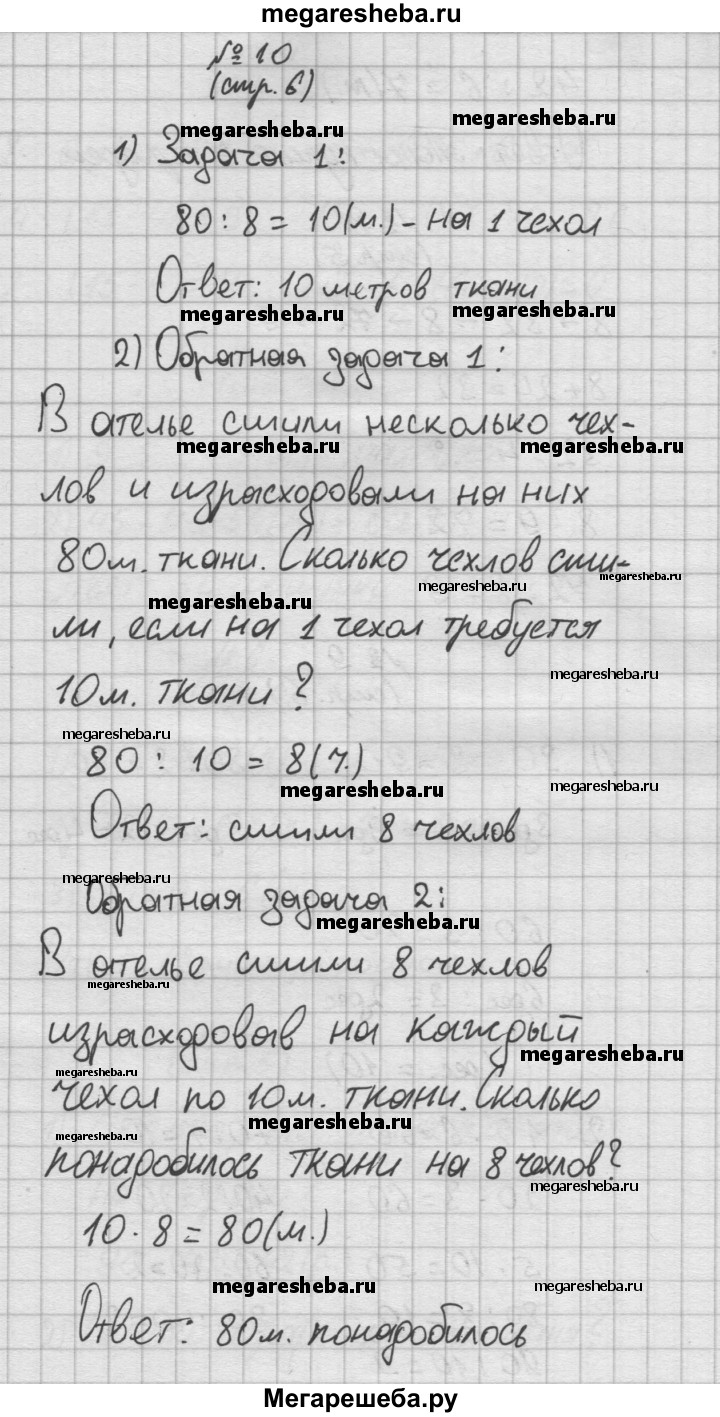 megaresheba.ru
№ 10
(стр. 6)
megaresheba.ru
megaresheba.ru
1) Задача 1:
80 : 8 = 10(м.) - на 1 чехол
Ответ: 10 метров ткани
megaresheba.ru
megaresheba.ru
2) Обратная задача 1:
В ателье сшили несколько чех-
megaresheba.ru
megaresheba.ru
лов и израсходовали на них
80м. ткани. Сколько чехлов сши-
megaresheba.ru
megaresheba.ru
megaresheba.ru
ли, если на 1 чехол требуется
10м. ткани?
megaresheba.ru
megaresheba.ru
80 : 10 = 8(ч.)
megaresheba.ru
megaresheba.ru
Ответ: сшили 8 чехлов
megaresheba.ru
megaresheba.ru
Обратная задача 2:
megaresheba.ru
В ателье сшили 8 чехлов
megaresheba.ru
израсходовав на каждый
megaresheba.ru
megaresheba.ru
чехол по 10м. ткани. Сколько
megaresheba.ru
megaresheba.ru
понадобилось ткани на 8 чехлов?
megaresheba.ru
10 · 8 = 80(м.)
megaresheba.ru
megaresheba.ru
Ответ: 80м. понадобилось
Мегарешеба.ру